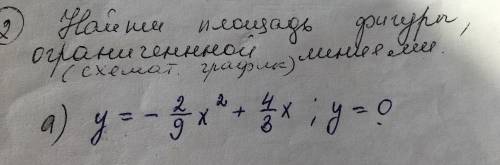 2) Найти площадь фигуры,
ограниченнной линиями.
(схемат. график)
а) y = - 2/9 x² + 4/3 x ; y = 0